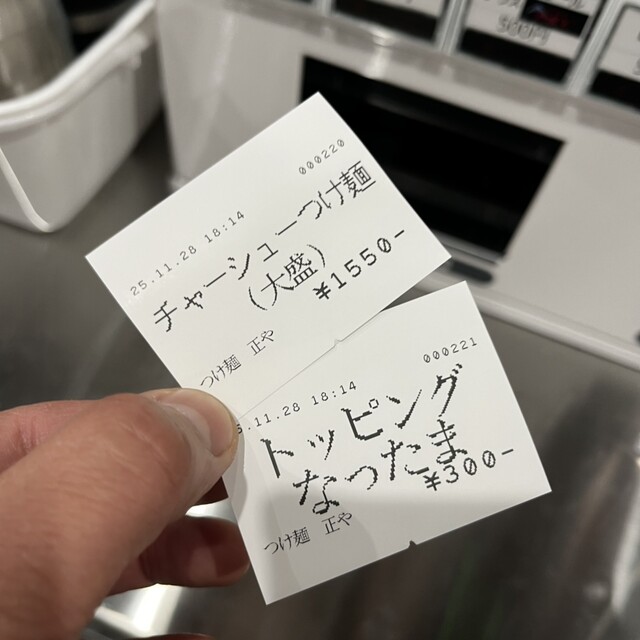 000220
25.11.28 18:14
チャーシューつけ麺
(大盛)
¥1550-
つけ麺 正や
000221
.11.28 18:14
トッピング
なったま
¥300-
つけ麺 正や